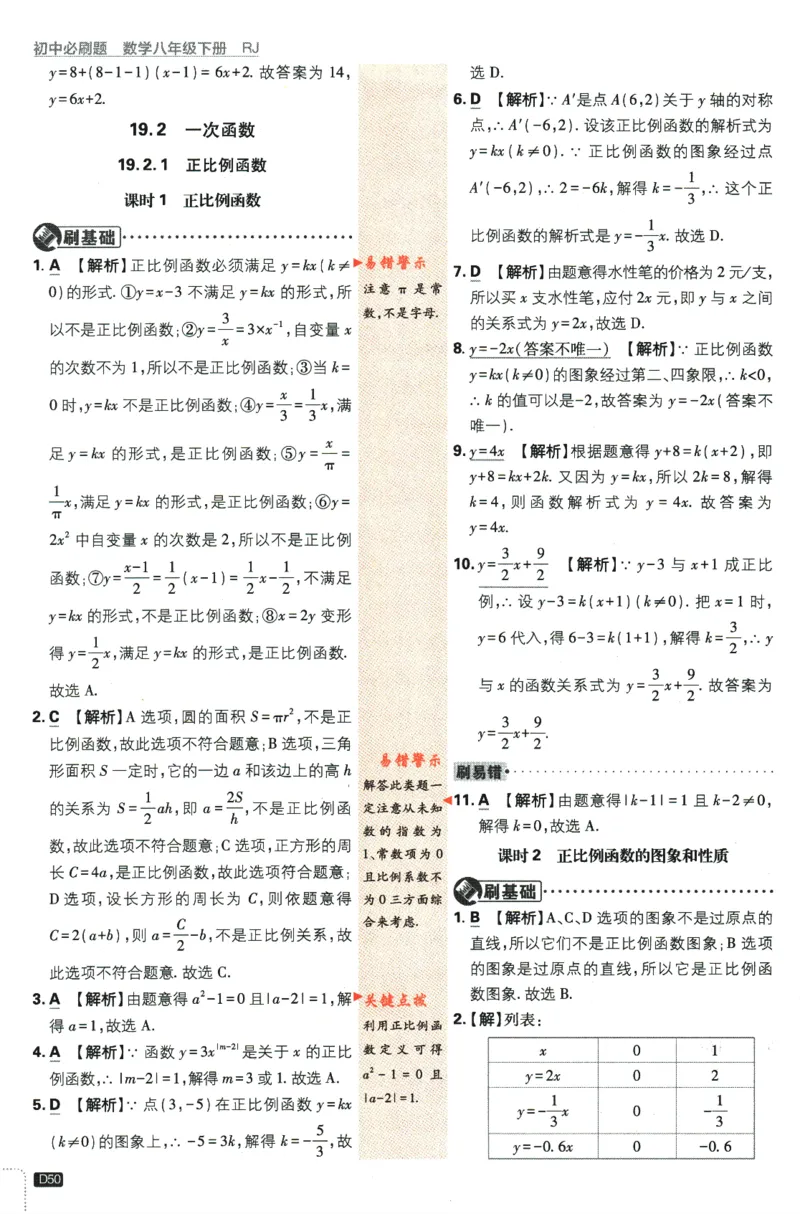 初中必刷题 数学八年级下册 RJ
y=8+(8-1-1)(x-1)= 6x+2. 故答案为 14,
y=6x+2.
19.2 一次函数
19.2.1 正比例函数
课时1 正比例函数
刷基础
1. A 【解析】正比例函数必须满足 y=kx(k≠
0)的形式. ①y=x-3 不满足 y=kx 的形式,所
以不是正比例函数;②y=3/x=3×x⁻¹,自变量 x
的次数不为 1,所以不是正比例函数;③当 k=
0时,y=kx 不是正比例函数;④y=x/3=1/3x,满
足 y=kx 的形式,是正比例函数;⑤y=x/π=
1/πx,满足 y=kx 的形式,是正比例函数;⑥y=
2x² 中自变量 x 的次数是 2,所以不是正比例
函数;⑦y=(x-1)/2=1/2(x-1)=1/2x-1/2,不满足
y=kx 的形式,不是正比例函数;⑧x=2y 变形
得 y=1/2x,满足 y=kx 的形式,是正比例函数.
故选 A.
2. C 【解析】A 选项,圆的面积 S=πr²,不是正
比例函数,故此选项不符合题意;B 选项,三角
形面积 S 一定时,它的一边 a 和该边上的高 h
的关系为 S=1/2ah,即 a=2S/h,不是正比例函
数,故此选项不符合题意;C 选项,正方形的周
长 C=4a,是正比例函数,故此选项符合题意;
D 选项,设长方形的周长为 C,则依题意得
C=2(a+b),则 a=C/2-b,不是正比例关系,故
此选项不符合题意. 故选 C.
3. A 【解析】由题意得 a²-1=0 且|a-2|=1,解
得 a=1,故选 A.
4. A 【解析】∵ 函数 y=3x^|m-2|是关于 x 的正比
例函数,∴ |m-2|=1,解得 m=3 或 1. 故选 A.
5. D 【解析】∵ 点(3,-5)在正比例函数 y=kx
(k≠0)的图象上,∴ -5=3k,解得 k=-5/3,故
D50
易错警示
注意 π 是常
数,不是字母.
易错警示
解答此类题一
定注意从未知
数的指数为
1、常数项为 0
且比例系数不
为 0 三方面综
合来考虑.
关键点拨
利用正比例函
数定义可得
a²-1=0 且
|a-2|=1.
选 D.
6. D 【解析】∵ A′是点 A(6,2)关于 y 轴的对称
点,∴ A′(-6,2). 设该正比例函数的解析式为
y=kx(k≠0). ∵ 正比例函数的图象经过点
A′(-6,2),∴ 2=-6k,解得 k=-1/3,∴ 这个正
比例函数的解析式是 y=-1/3x. 故选 D.
7. D 【解析】由题意得水性笔的价格为 2 元/支,
所以买 x 支水性笔,应付 2x 元,即 y 与 x 之间
的关系式为 y=2x,故选 D.
8. y=-2x(答案不唯一) 【解析】∵ 正比例函数
y=kx(k≠0)的图象经过第二、四象限,∴ k<0,
∴ k 的值可以是-2,故答案为 y=-2x(答案不
唯一).
9. y=4x 【解析】根据题意得 y+8=k(x+2),即
y+8=kx+2k. 又因为 y=kx,所以 2k=8,解得
k=4,则函数解析式为 y=4x. 故答案为
y=4x.
10. y=3/2x+9/2 【解析】∵ y-3 与 x+1 成正比
例,∴ 设 y-3=k(x+1)(k≠0). 把 x=1 时,
y=6 代入,得 6-3=k(1+1),解得 k=3/2,∴ y
与 x 的函数关系式为 y=3/2x+9/2. 故答案为
y=3/2x+9/2.
刷易错
11. A 【解析】由题意得|k-1|=1 且 k-2≠0,
解得 k=0,故选 A.
课时2 正比例函数的图象和性质
刷基础
1. B 【解析】A、C、D 选项的图象不是过原点的
直线,所以它们不是正比例函数图象;B 选项
的图象是过原点的直线,所以它是正比例函
数图象. 故选 B.
2.【解】列表:
x 0 1
y=2x 0 2
y=-1/3x 0 -1/3
y=-0.6x 0 -0.6